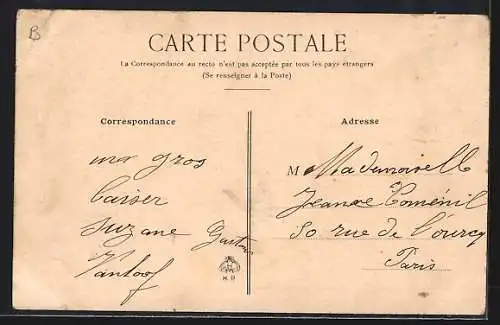 B
CARTE POSTALE
La Correspondance au recto n'est pas acceptée par tous les pays étrangers
(Se renseigner à la Poste)
Correspondance
Adresse
un gros
baiser
suzane Gaston
Vanloof
M Mademoiselle
Jeanne Coménil
50 rue de l'ourcq
Paris
N.D